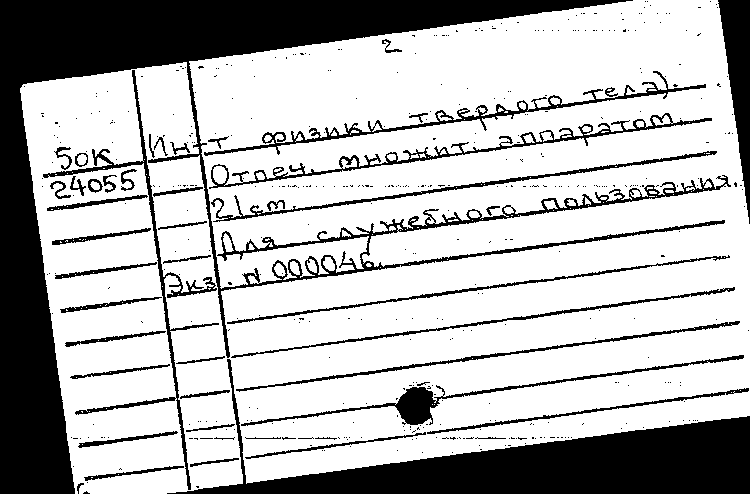 2
50к Ин-т физики твердого тела).
24055 Отпеч. множит. аппаратом.
21см.
Для служебного пользования.
Экз. N 000046.